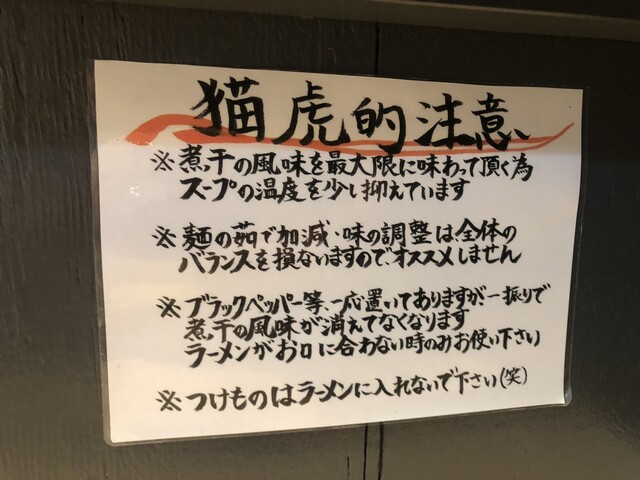 猫虎的注意
※煮干の風味を最大限に味わって頂く為
スープの温度を少し抑えています
※麺の茹で加減・味の調整は、全体の
バランスを損ないますので、オススメしません
※ブラックペッパー等、一応置いてありますが一振りで
煮干の風味が消えてなくなります
ラーメンがお口に合わない時のみお使い下さい
※つけものはラーメンに入れないで下さい(笑)